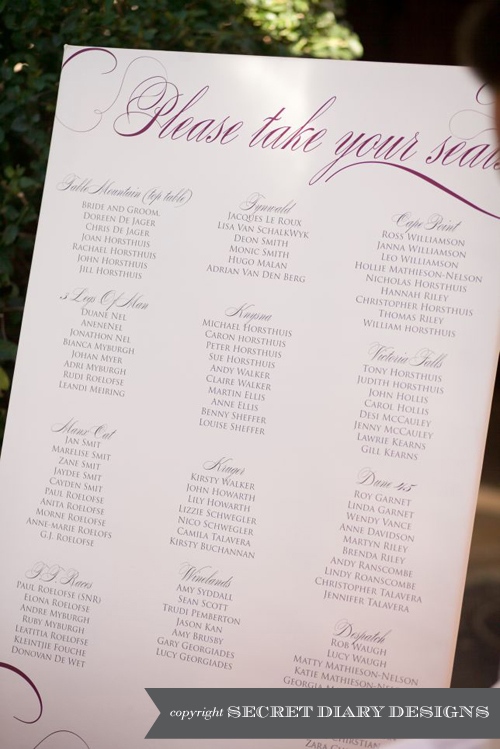 Please take your seats
Table Mountain (top table)
Bride and Groom.
Doreen De Jager
Chris De Jager
Joan Horsthuis
Rachael Horsthuis
John Horsthuis
Jill Horsthuis
3 Legs Of Man
Duane Nel
AneneNel
Jonathon Nel
Bianca Myburgh
Johan Myer
Adri Myburgh
Rudi Roelofse
Leandi Meiring
Manx Cat
Jan Smit
Marelise Smit
Zane Smit
Jaydee Smit
Cayden Smit
Paul Roelofse
Anita Roelofse
Morne Roelofse
Anne-Marie Roelofs
G.J. Roelofse
T.T. Races
Paul Roelofse (SNR)
Elona Roelofse
Andre Myburgh
Ruby Myburgh
Leatitia Roelofse
Kleintjie Fouche
Donovan De Wet
Tynwald
Jacques Le Roux
Lisa Van Schalkwyk
Deon Smith
Monic Smith
Hugo Malan
Adrian Van Den Berg
Knysna
Michael Horsthuis
Caron Horsthuis
Peter Horsthuis
Sue Horsthuis
Andy Walker
Claire Walker
Martin Ellis
Anne Ellis
Benny Sheffer
Louise Sheffer
Kruger
Kirsty Walker
John Howarth
Lily Howarth
Lizzie Schwegler
Nico Schwegler
Camila Talavera
Kirsty Buchannan
Winelands
Amy Syddall
Sean Scott
Trudi Pemberton
Jason Kan
Amy Brusby
Gary Georgiades
Lucy Georgiades
Cape Point
Ross Williamson
Janna Williamson
Leo Williamson
Hollie Mathieson-Nelson
Nicholas Horsthuis
Hannah Riley
Christopher Horsthuis
Thomas Riley
William horsthuis
Victoria Falls
Tony Horsthuis
Judith Horsthuis
John Hollis
Carol Hollis
Desi McCauley
Jenny McCauley
Lawrie Kearns
Gill Kearns
Dane 45
Roy Garnet
Linda Garnet
Wendy Vance
Anne Davidson
Martyn Riley
Brenda Riley
Andy Ranscombe
Lindy Roanscombe
Christopher Talavera
Jennifer Talavera
Despatch
Rob Waugh
Lucy Waugh
Matty Mathieson-Nelson
Katie Mathieson-Nelson
copyright SECRET DIARY DESIGNS